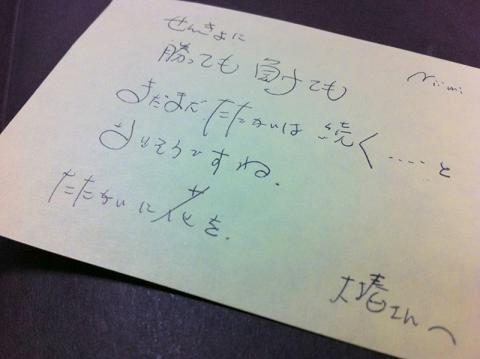 せんきょに
Niimi
勝っても 負けても
まだまだ たたかいは 続く....と
なりそうですね。
たたかいに花を。
さんへ